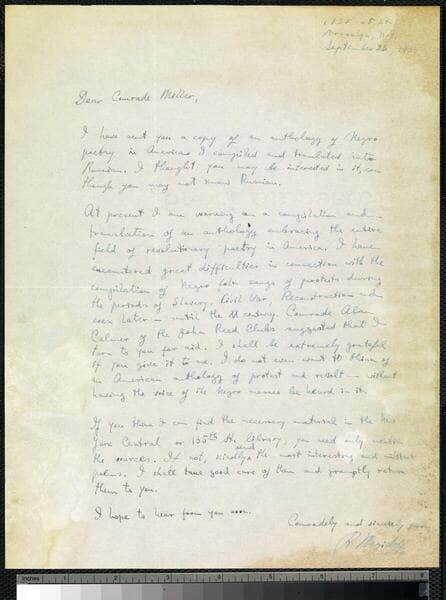 September 26
Dear Comrade Miller,
I have sent you a copy of an anthology of Negro
poetry in America I compiled and translated into
Russian. I thought you may be interested in it, even
though you may not know Russian.
At present I am working on a compilation and
translation of an anthology embracing the entire
field of revolutionary poetry in America. I have
encountered great difficulties in connection with the
compilation of Negro folk songs of protests during
the periods of Slavery, Civil War, Reconstruction and
even later — until the century. Comrade Alan
Calmer of the John Reed Clubs suggested that I
turn to you for aid. I shall be extremely grateful
if you give it to me. I do not even want to think of
an American anthology of protest and revolt — without
having the voice of the Negro masses be heard in it.
If you think I can find the necessary material in the New
York Central or 135th St. library, you need only mention
the sources. If not, kindly send the most interesting and
poems. I shall take good care of them and promptly return
them to you.
I hope to hear from you soon.
Comradely and sincerely yours,
Inches 1 2 3 4 5 6 7 8